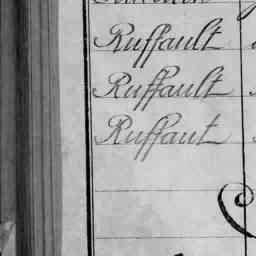 Ruffault
Ruffault
Ruffaut